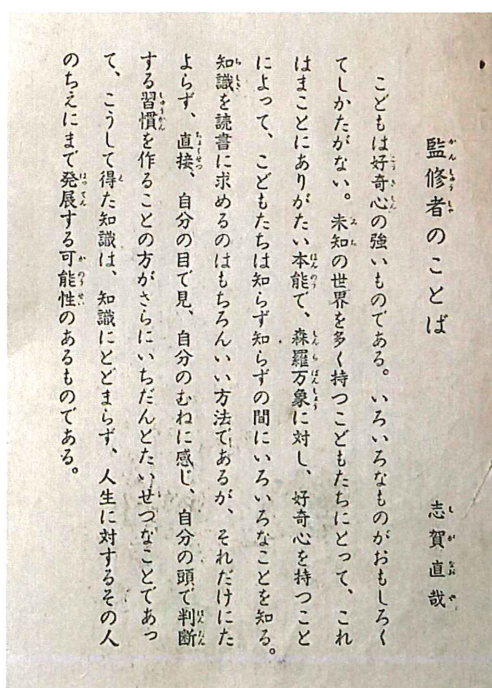 監修者のことば
志賀直哉
こどもは好奇心の強いものである。いろいろなものがおもしろく
てしかたがない。未知の世界を多く持つこどもたちにとって、これ
はまことにありがたい本能で、森羅万象に対し、好奇心を持つこと
によって、こどもたちは知らず知らずの間にいろいろなことを知る。
知識を読書に求めるのはもちろんいい方法であるが、それだけにた
よらず、直接、自分の目で見、自分のむねに感じ、自分の頭で判断
する習慣を作ることの方がさらにいちだんとたいせつなことであっ
て、こうして得た知識は、知識にとどまらず、人生に対するその人
のちえにまで発展する可能性のあるものである。